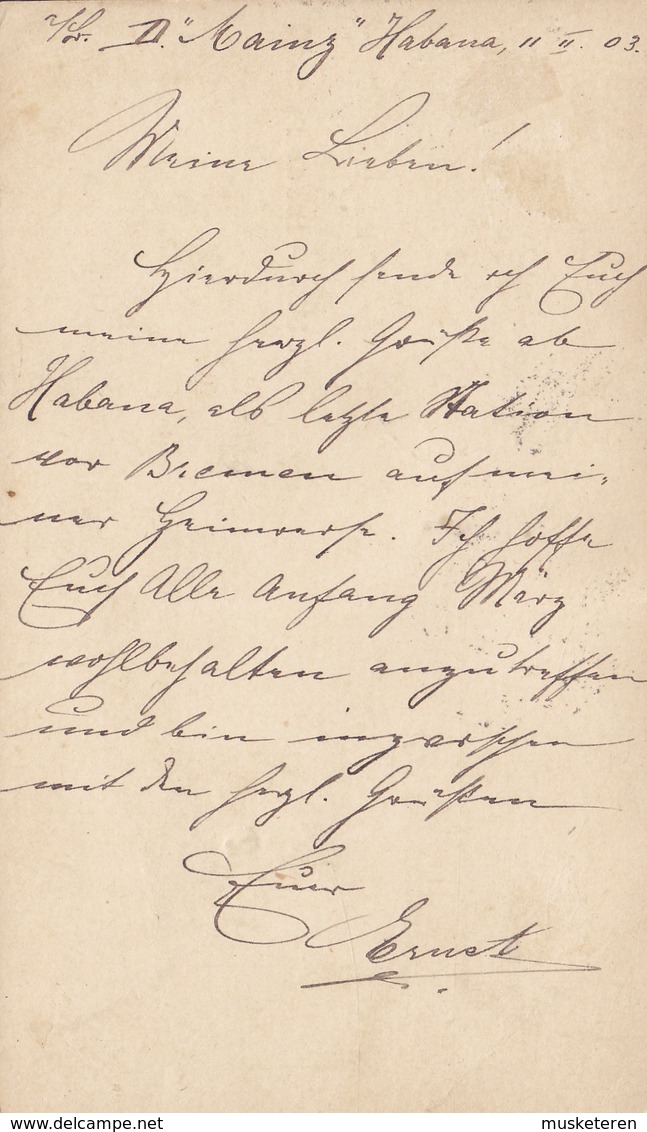 D. "Mainz" Habana, 11 II. 03.
Meine Lieben!
Hierdurch sende ich Euch
meine herzl. Grüße ab
Habana, als letzte Station
vor Bremen auf mei-
ner Heimreise. Ich hoffe
Euch Alle Anfang März
wohlbehalten anzutreffen
und bin inzwischen
mit den herzl. Grüßen
Euer
Ernst
delcampe.net
musketeren